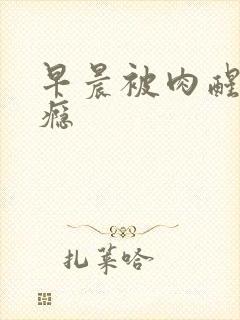 早晨被肉醒
瘾
扎莱哈